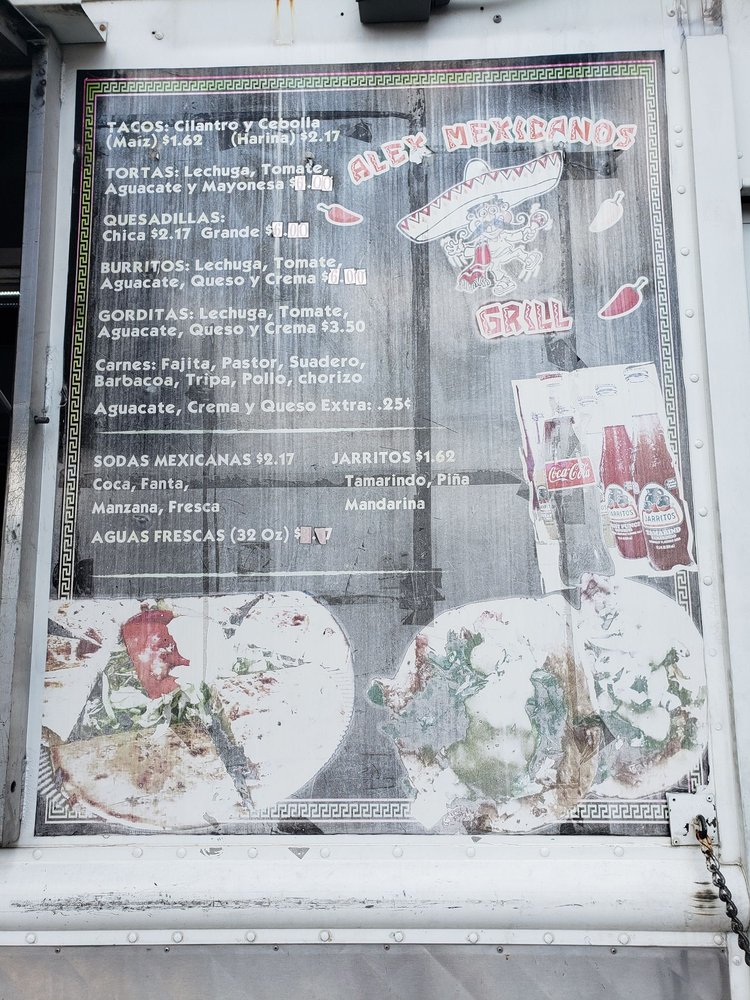 TACOS: Cilantro y Cebolla
(Maiz) $1.62 (Harina) $2.17
TORTAS: Lechuga, Tomate,
Aguacate y Mayonesa $6.00
QUESADILLAS:
Chica $2.17 Grande $6.00
BURRITOS: Lechuga, Tomate,
Aguacate, Queso y Crema $6.00
GORDITAS: Lechuga, Tomate,
Aguacate, Queso y Crema $3.50
Carnes: Fajita, Pastor, Suadero,
Barbacoa, Tripa, Pollo, chorizo
Aguacate, Crema y Queso Extra: .25¢
SODAS MEXICANAS $2.17
Coca, Fanta,
Manzana, Fresca
JARRITOS $1.62
Tamarindo, Piña
Mandarina
AGUAS FRESCAS (32 Oz)
ALEX MEXICANOS
GRILL
Coca-Cola
JARRITOS
JARRITOS
TAMARINDO